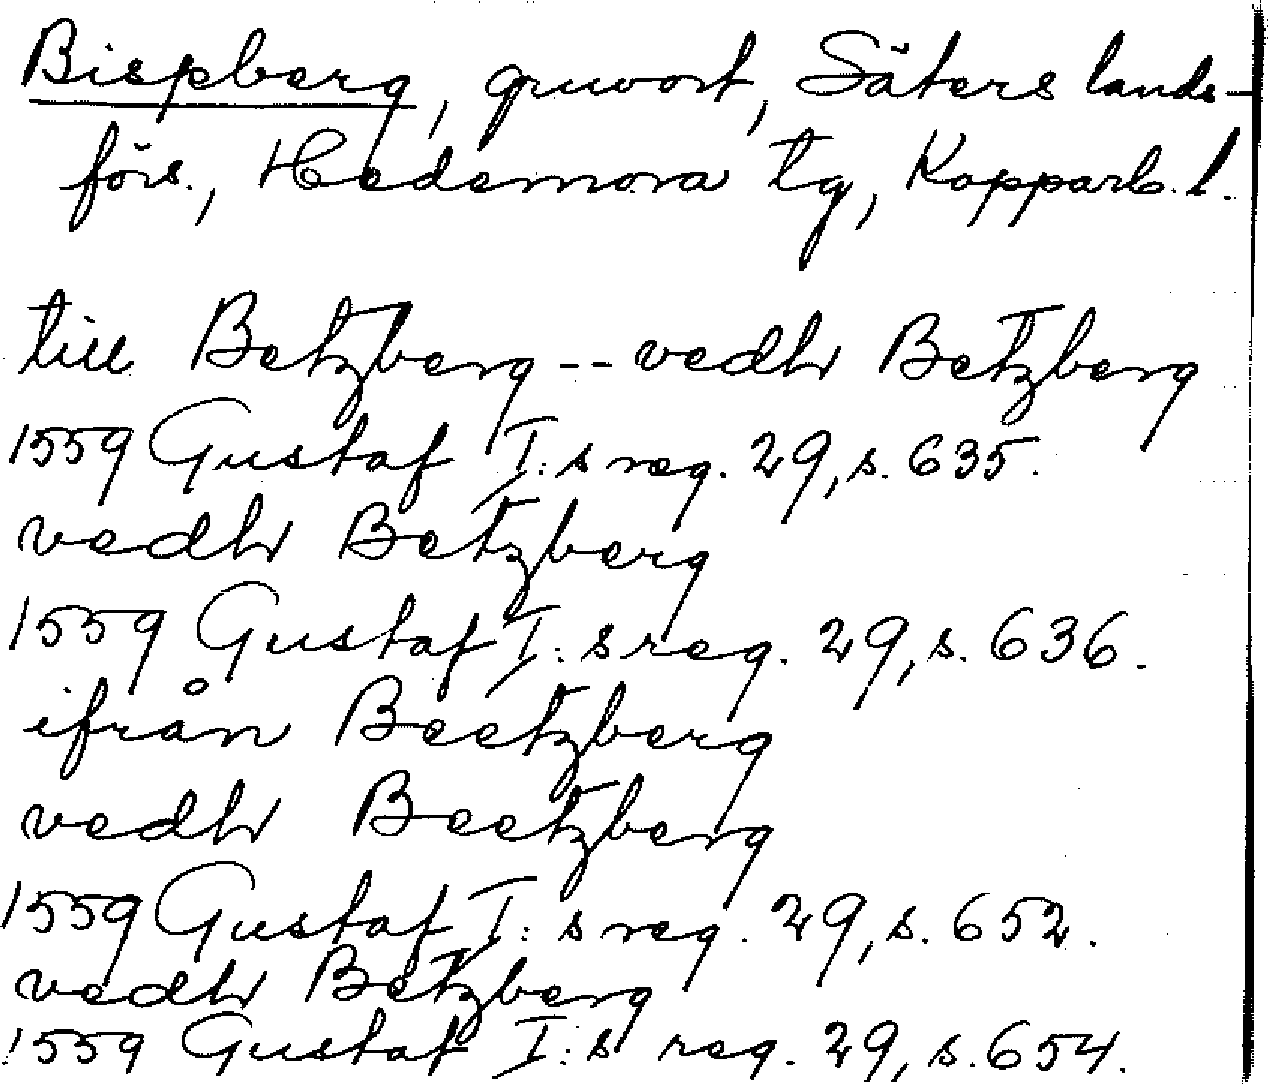 Bispberg, gruvort, Säters lands-
förs., Hedemora tg, Kopparb. l.
till Betzberg -- vedh Betzberg
1559 Gustaf I:s reg. 29, s. 635.
vedh Betzberg
1559 Gustaf I:s reg. 29, s. 636.
ifrån Beetzberg
vedh Beetzberg
1559 Gustaf I:s reg. 29, s. 652.
vedh Betzberg
1559 Gustaf I:s reg. 29, s. 654.